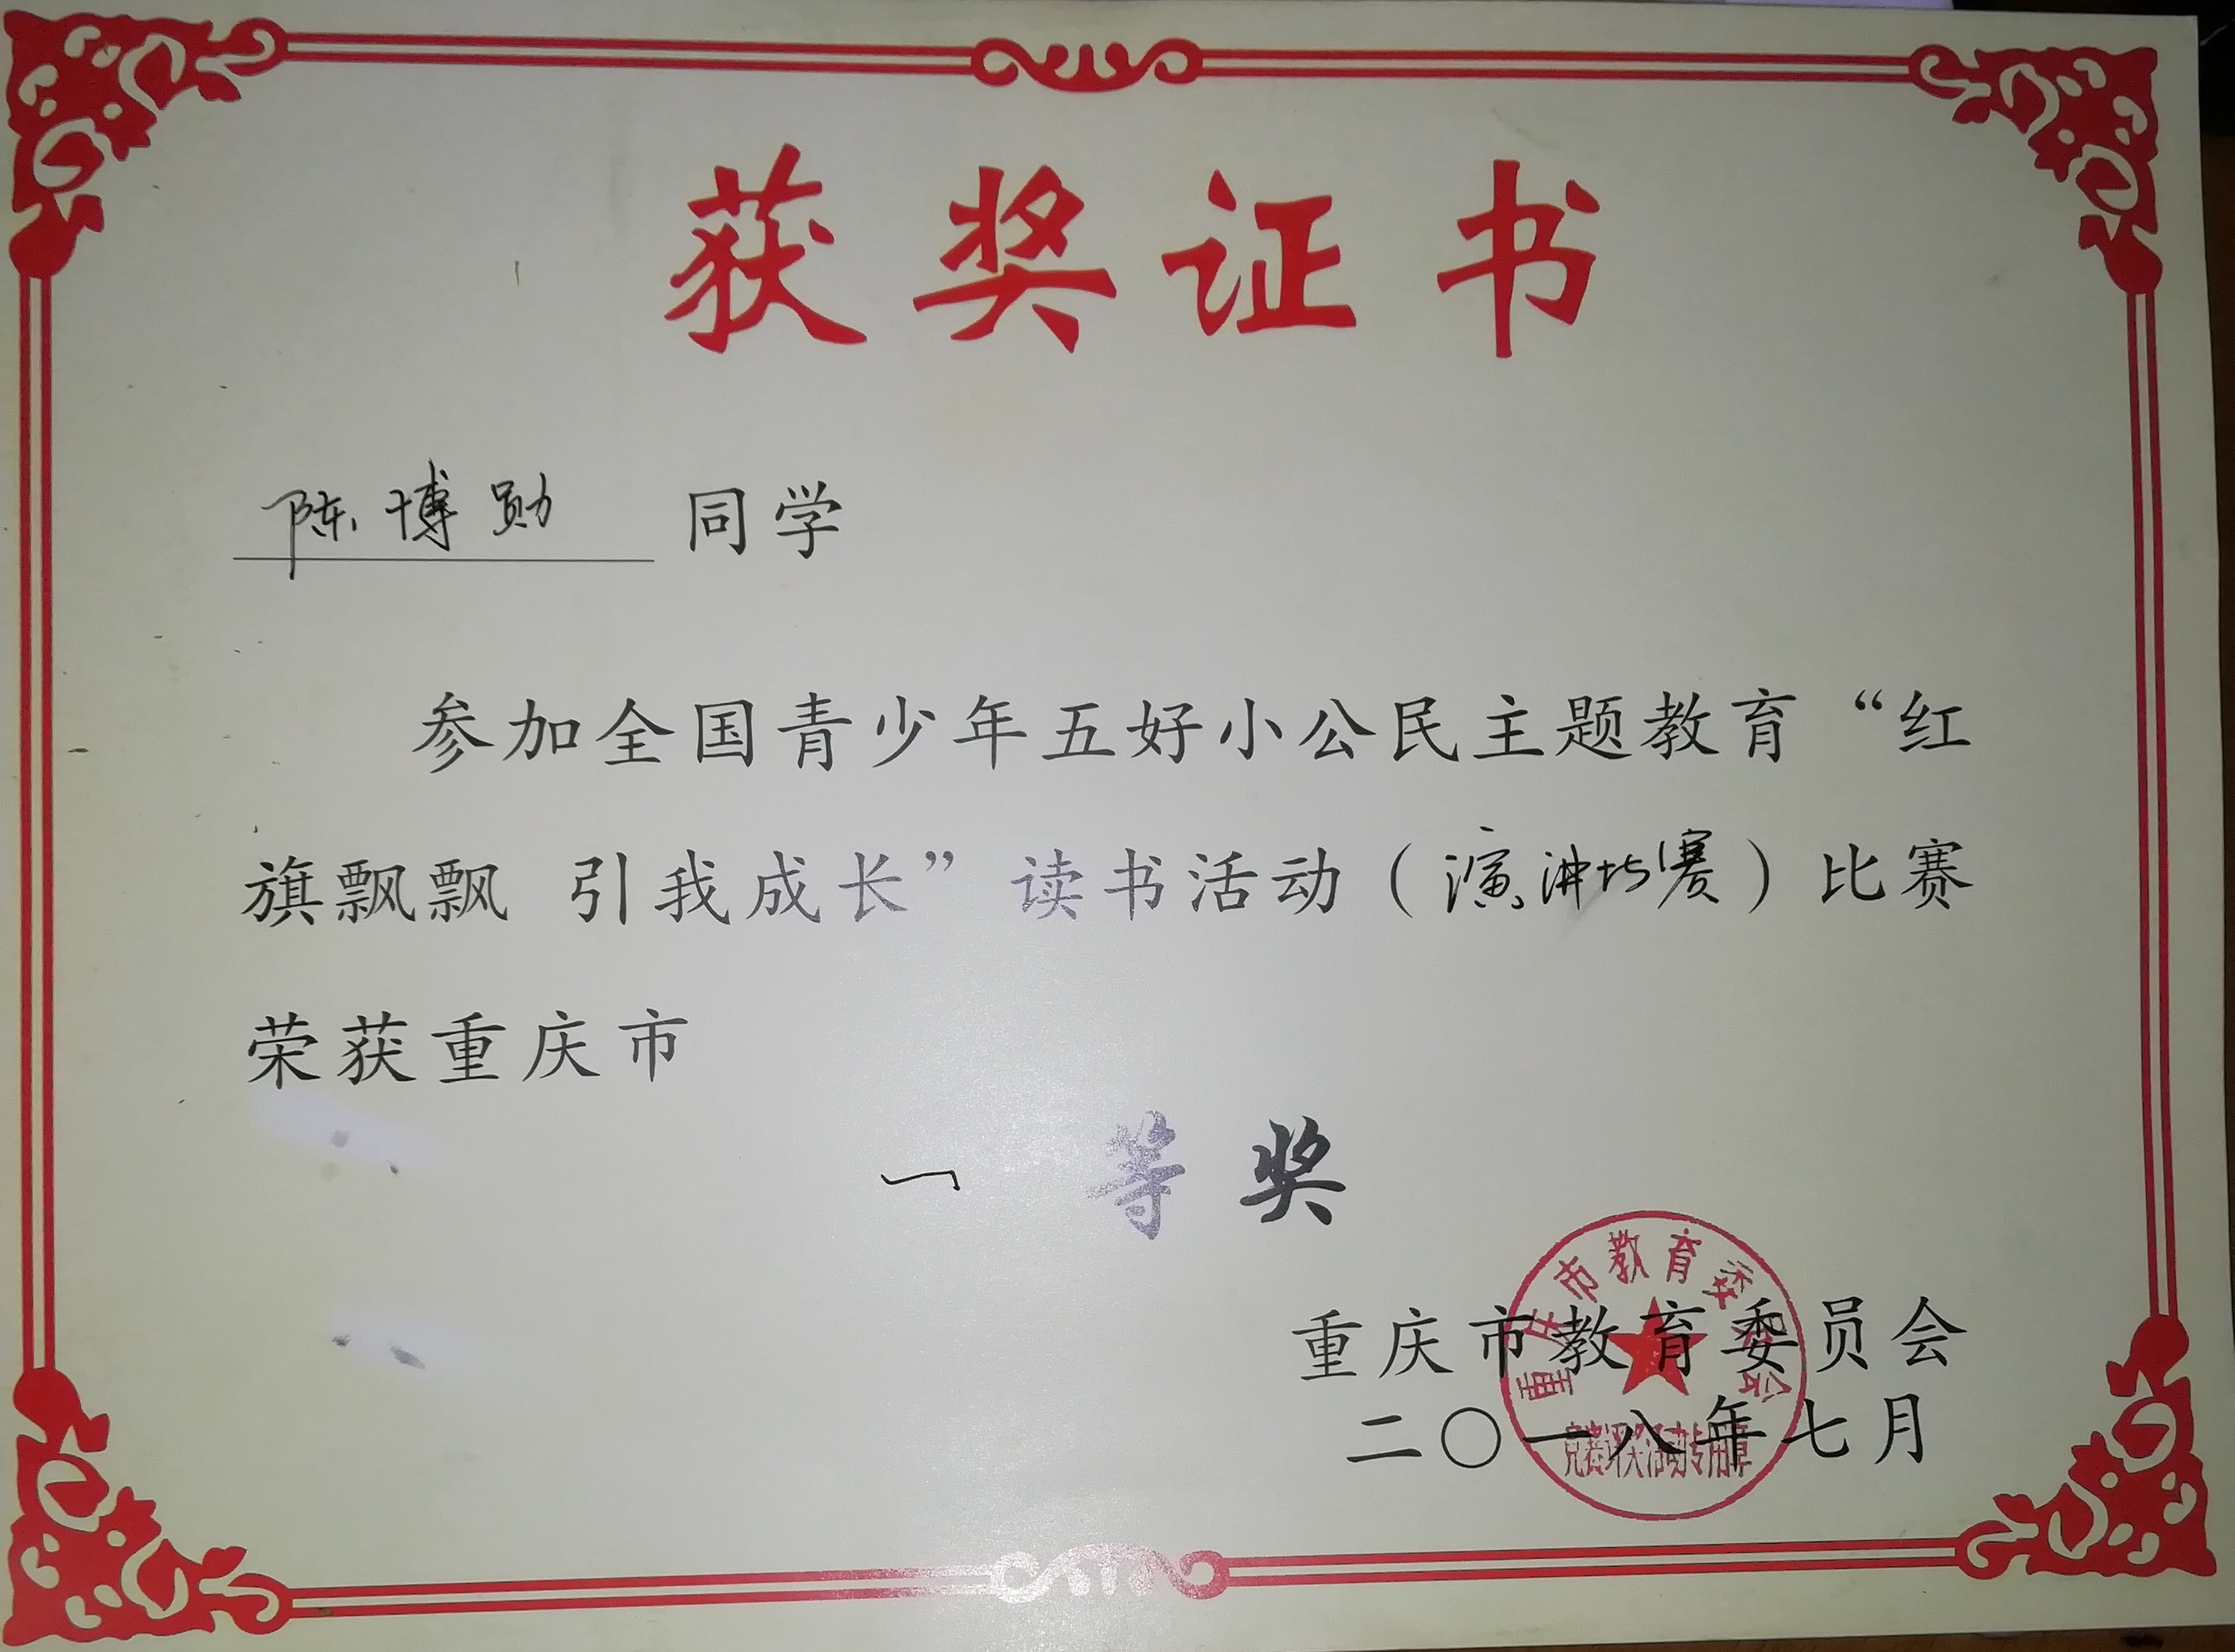 获奖证书
陈博勋 同学
参加全国青少年五好小公民主题教育“红
旗飘飘 引我成长”读书活动（演讲比赛）比赛
荣获重庆市
一 等奖
重庆市教育委员会
二〇一八年七月
重庆市教育委员会
竞赛评奖活动专用章